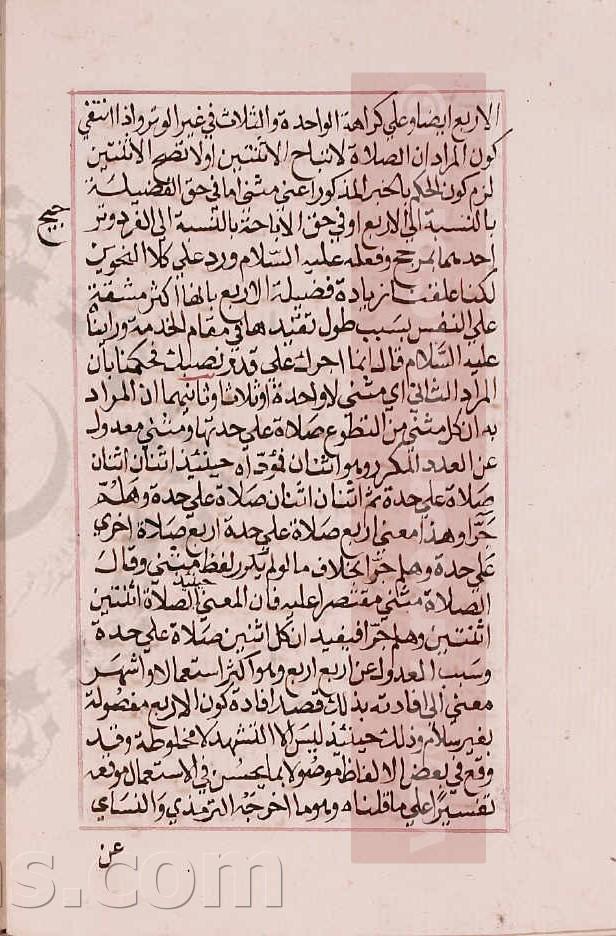 الاربع ايضا وعلي كراهة الواحدة والثلاث في غير الوتر واذا انتفي
كون المراد ان الصلاة لا تباح الا ثنتين او لا تصح الا ثنتين
لزم كون الحكم بالخبر المذكور اعني مثني اما في حق الفضيلة
بالنسبة الي الاربع او في حق الاباحة بالنسبة الي الفرد وترجيح
احدهما بمرجح وفعله عليه السلام ورد علي كلا النحوين
لكنا علمنا زيادة فضيلة الاربع بانها اكثر مشقة
علي النفس بسبب طول تقييدها في مقام الخدمة وراينا
عليه السلام قال انما اجرك علي قدر نصبك فحكمنا بان
المراد الثاني اي مثني لا واحدة او ثلاثا وثانيهما ان المراد
به ان كل مثني من التطوع صلاة علي حدتها ومثني معدول
عن العدد المكرر وهو اثنان فمؤداه حينئذ اثنان اثنان
صلاة علي حدة ثم اثنان اثنان صلاة علي حدة وهلم
جرا وهذا معني اربع صلاة علي حدة اربع صلاة اخري
علي حدة وهلم جرا بخلاف ما لو لم يكرر لفظ مثني وقال
الصلاة مثني مقتصرا عليه فان المعني حينئذ الصلاة اثنتين
اثنتين وهلم جرا فيفيد ان كل اثنين صلاة علي حدة
وسبب العدول عن اربع اربع وهو اكثر استعمالا واشهر
معني الي افادته بذلك قصد افادة كون الاربع مفصولة
بغير سلام وذلك حينئذ ليس الا التشهد لا مخلوطة وقد
وقع في بعض الالفاظ موصولا بما يحسن في الاستعمال موقعه
تفسيرا علي ما قلناه وهو ما اخرجه الترمذي والنساي
عن
s.com